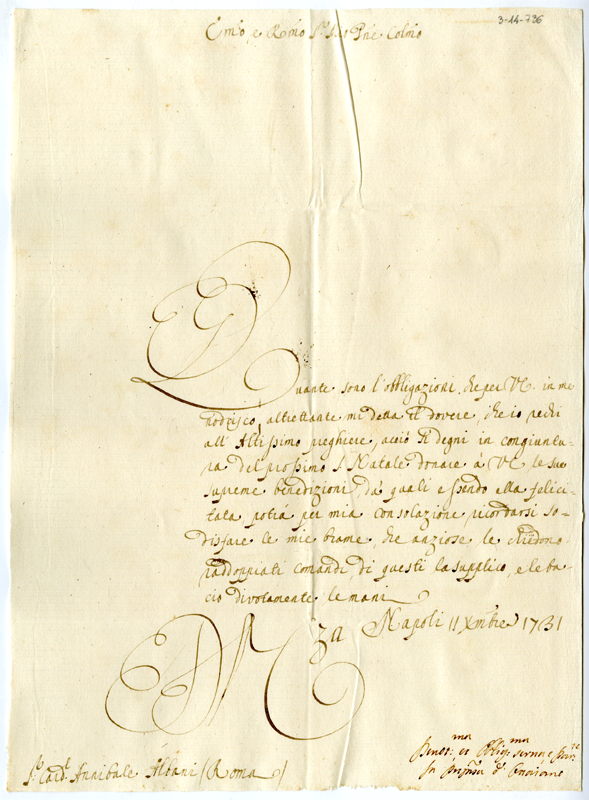 3-14-736
Em̃o, e Rem̃o Sig.r Sig.r Pñe Colm̃o
Quante sono l'obbligazioni, che per VE. in me
nodrisco, altrettante mi detta il dovere, che io rechi
all'Altissimo preghiere, acciò si degni in congiuntu-
ra del prossimo S. Natale donare à VE. le sue
supreme benedizioni, dà quali essendo ella felici-
tata, potrà per mia consolazione, ricordarsi so-
disfare le mie brame, che anziose le chiedono
raddoppiati comandi, di questi la supplico, e le ba-
cio divotamente le mani
Napoli 11 Xmbre 1731
Sr. Card. Annibale Albani (Roma)